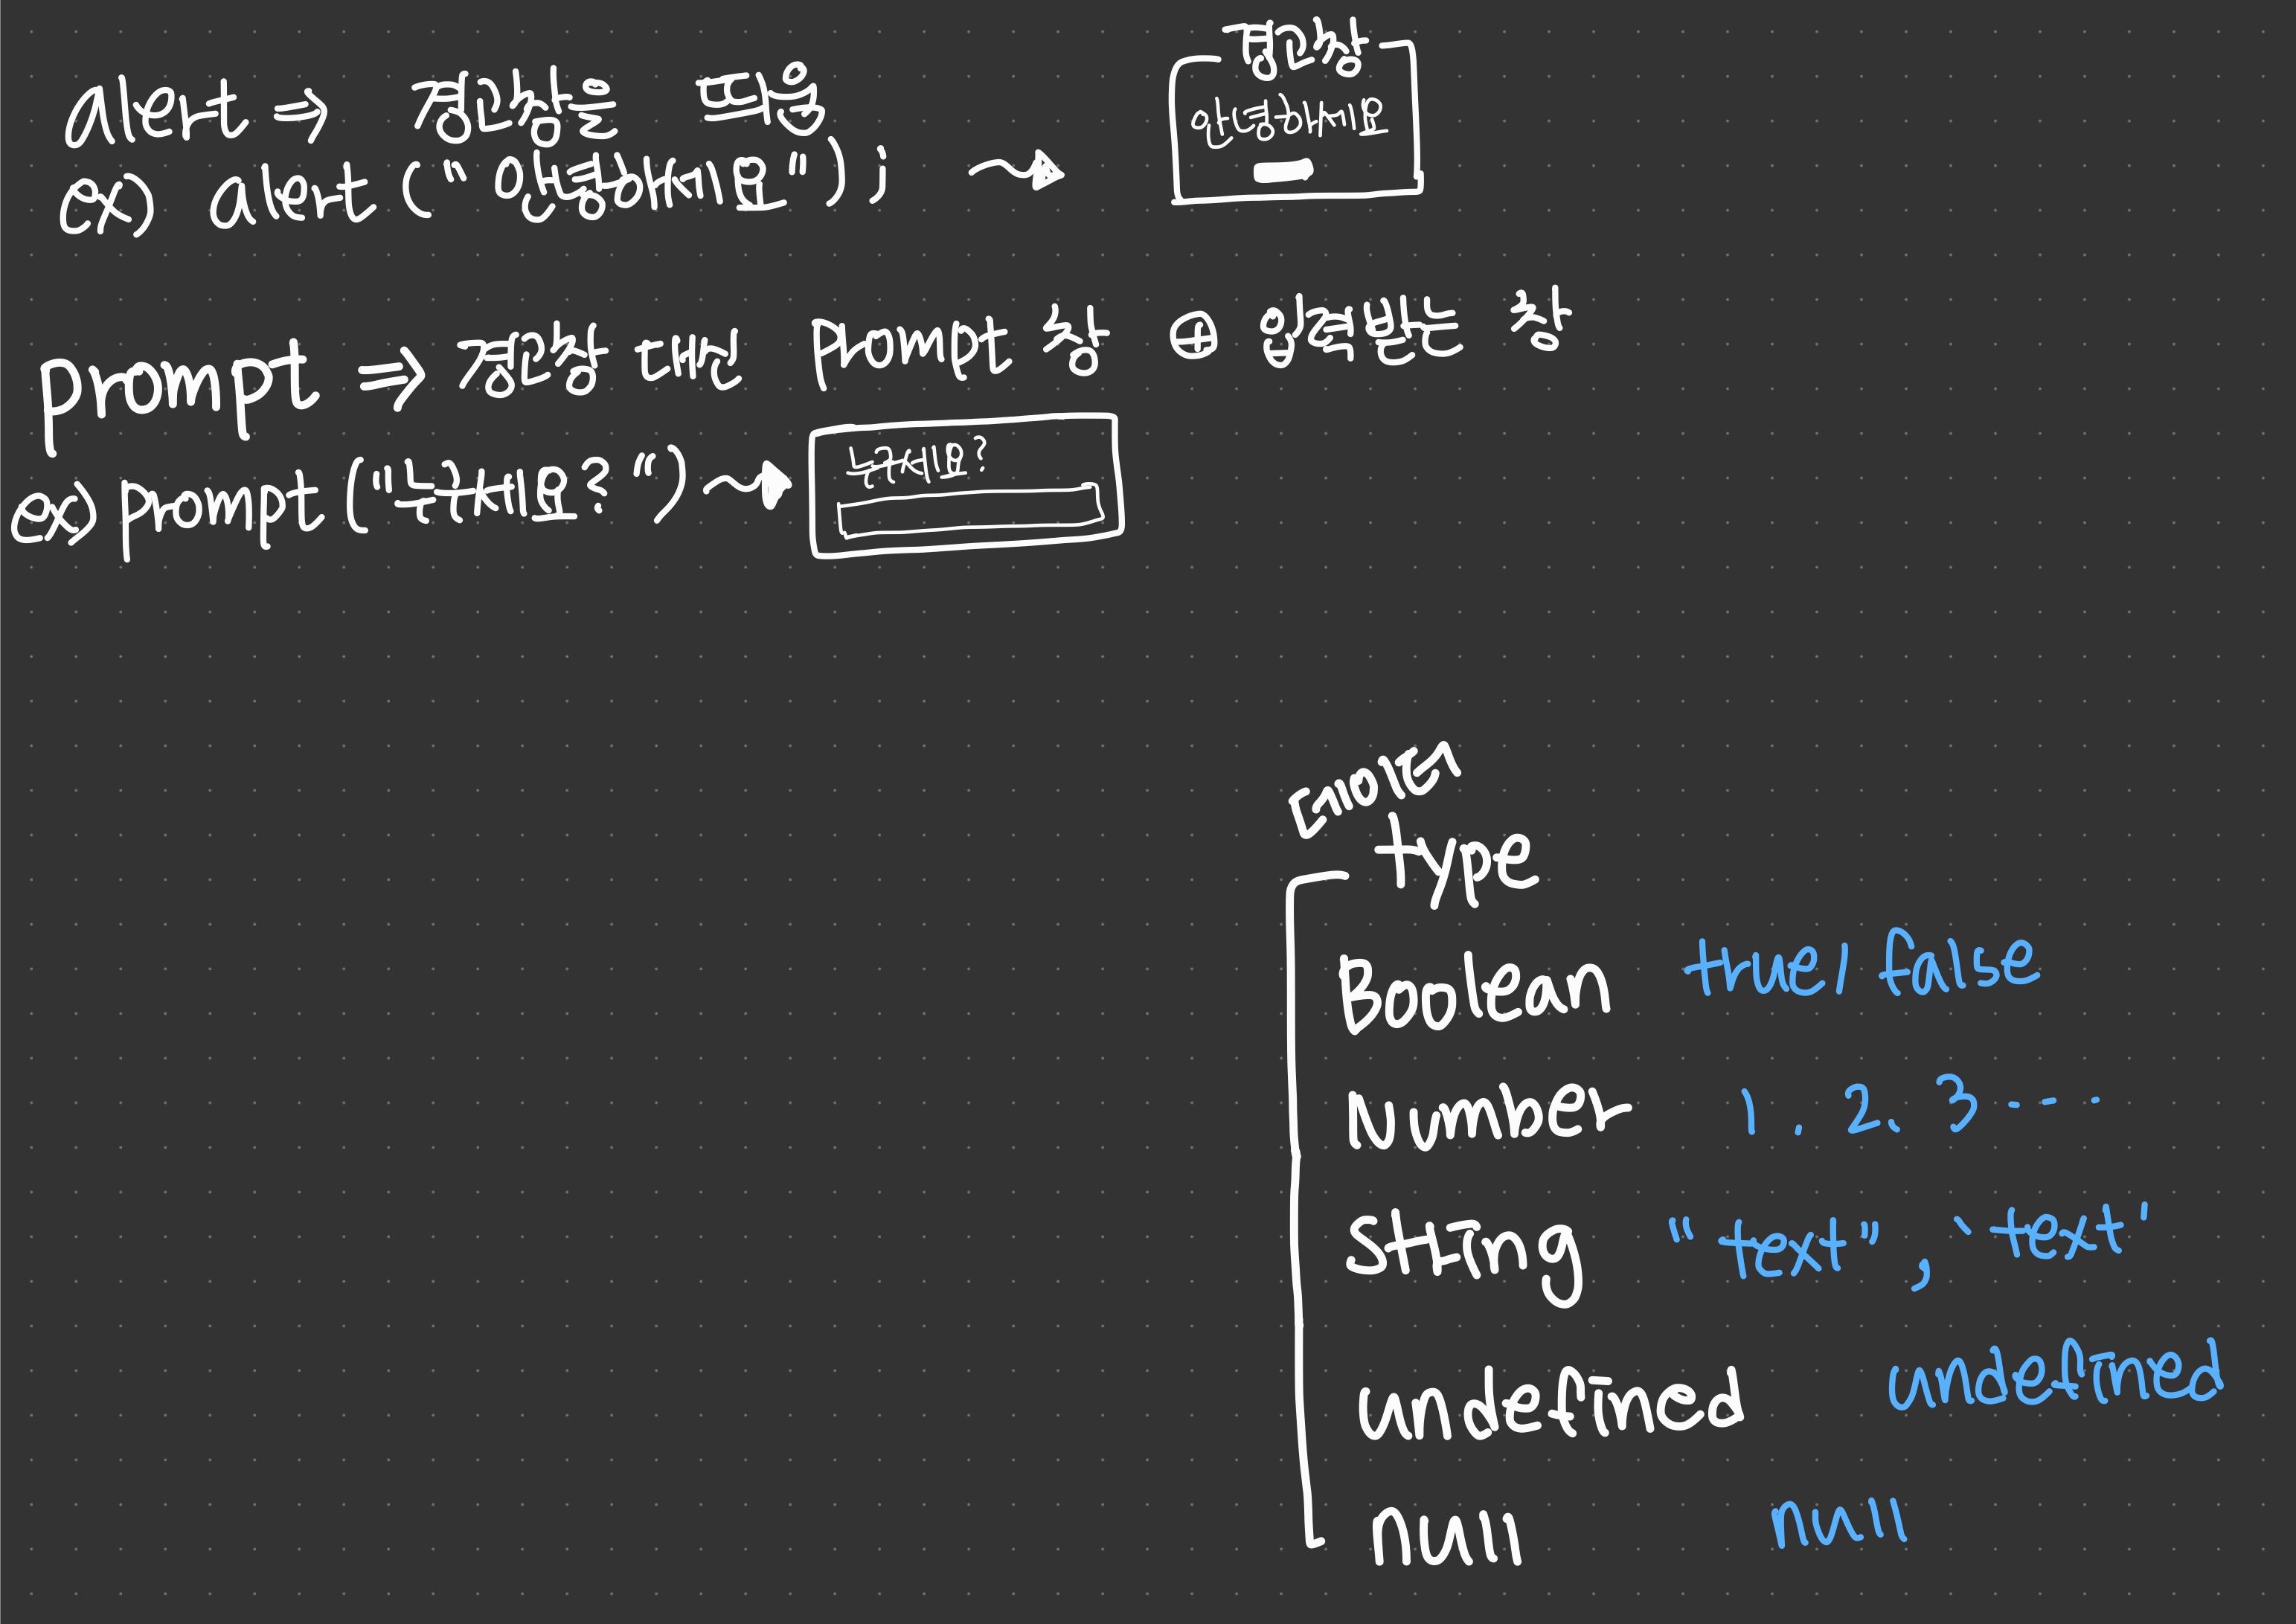 Alert ⇒ 경고창을 띄움
ex) alert ("안녕하세요");
경고창
안녕하세요
prompt ⇒ 경고창 대신 prompt 창 ⊕ 입력받는 창
ex) prompt ("누구세요?")
누구세요?
type
Boolean true/false
Number 1, 2, 3 ---
String "text", 'text'
undefined undefined
null null